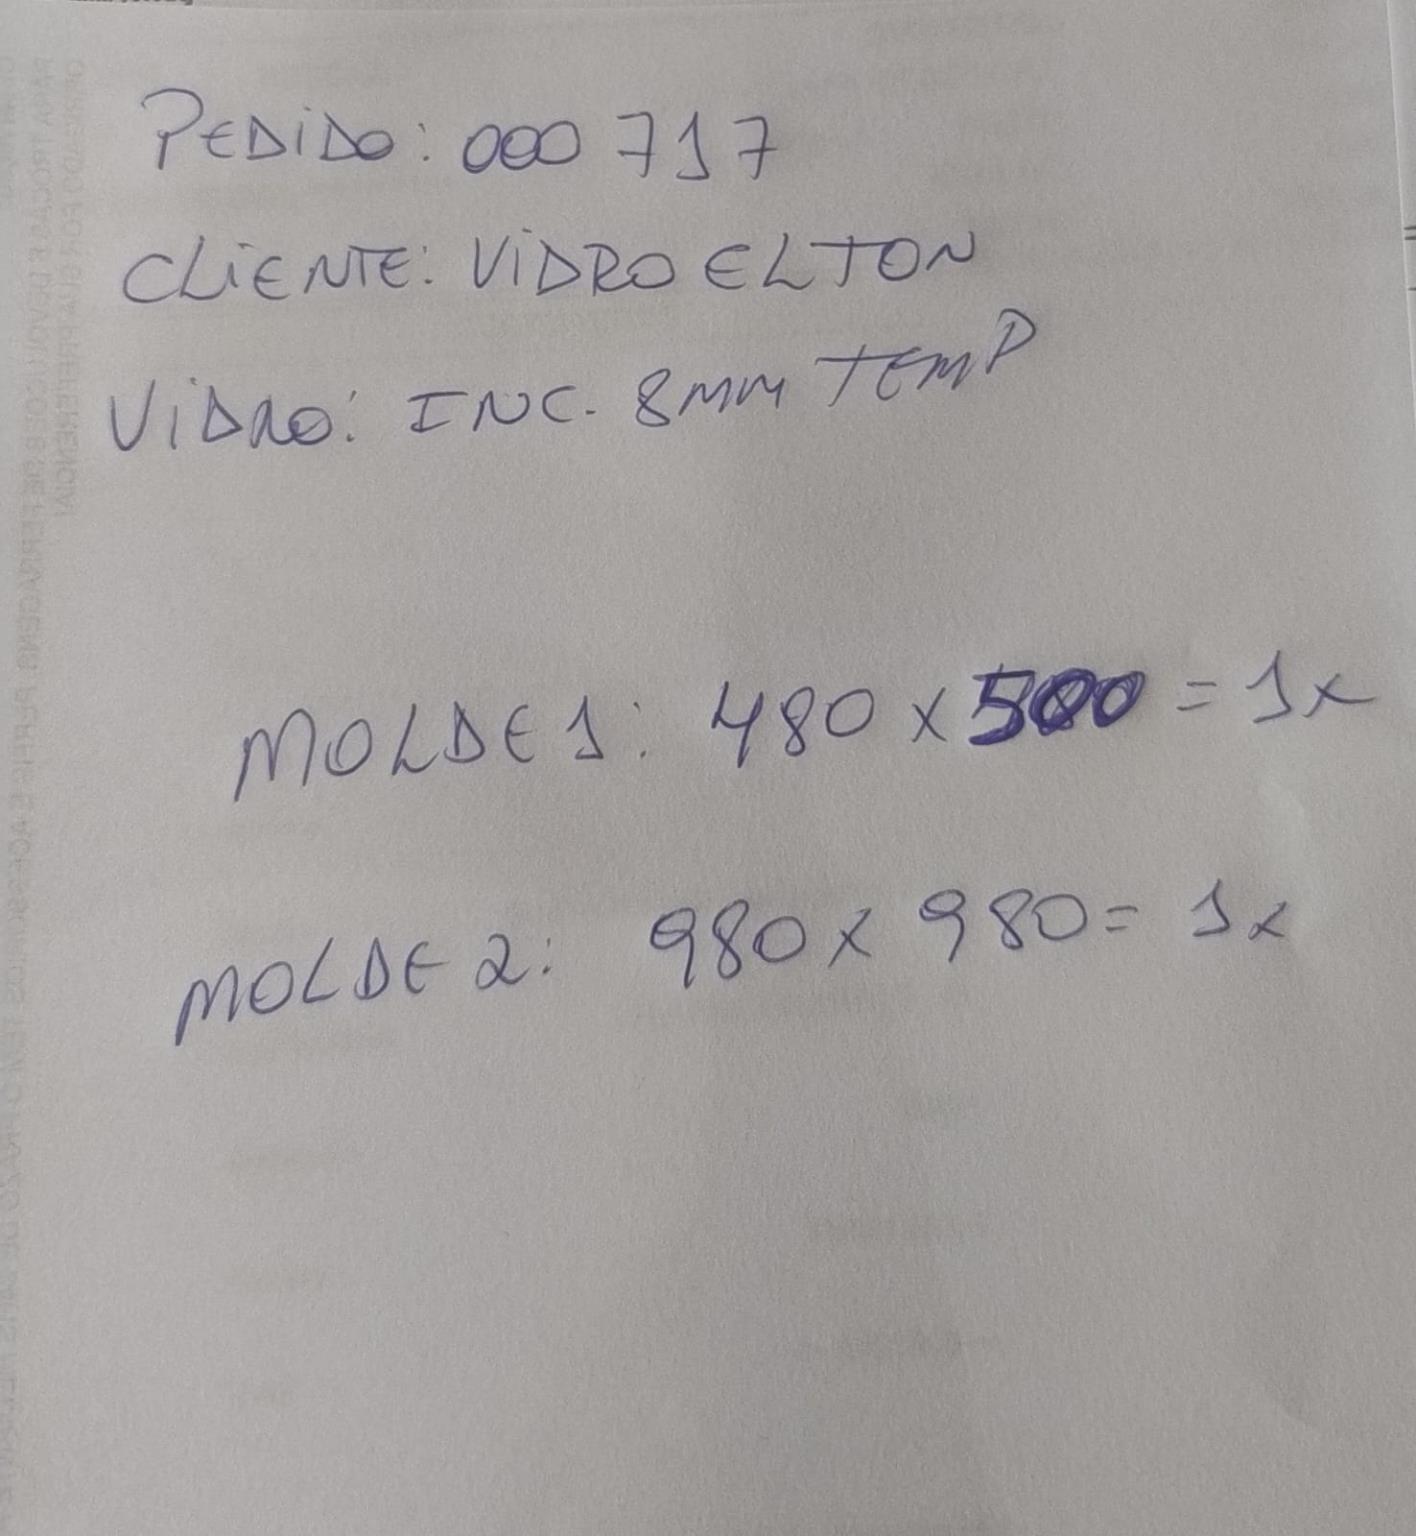 PEDIDO: 000717
CLIENTE: VIDRO ELTON
VIDRO: INC. 8MM TEMP
MOLDE 1: 480 x 500 = 1x
MOLDE 2: 980 x 980 = 1x